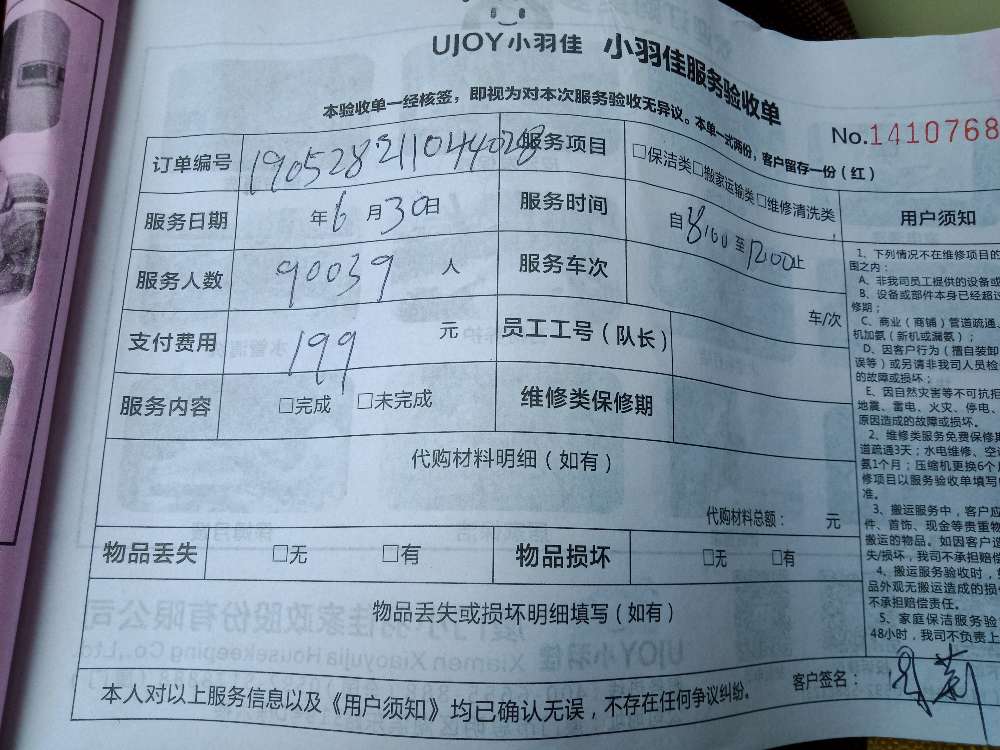 UJOY小羽佳 小羽佳服务验收单
本验收单一经核签，即视为对本次服务验收无异议。本单一式两份，客户留存一份（红）
No.1410768
订单编号 190528211044028 服务项目 □保洁类□搬家运输类□维修清洗类
服务日期 年6月30日 服务时间 自8:00至12:00止
服务人数 90039 人 服务车次 车/次
支付费用 199 元 员工工号（队长）
服务内容 □完成 □未完成 维修类保修期
代购材料明细（如有）
代购材料总额： 元
物品丢失 □无 □有 物品损坏 □无 □有
物品丢失或损坏明细填写（如有）
本人对以上服务信息以及《用户须知》均已确认无误，不存在任何争议纠纷。
客户签名：
用户须知
1、下列情况不在维修项目的
围之内：
A、非我司员工提供的设备或
B、设备或部件本身已经超过
修期；
C、商业（商铺）管道疏通、
机加氨（新机或漏氨）；
D、因客户行为（擅自装卸
误等）或另请非我司人员检
的故障或损坏；
E、因自然灾害等不可抗拒
地震、雷电、火灾、停电、
原因造成的故障或损坏。
2、维修类服务免费保修期
道疏通3天；水电维修、空
氨1个月；压缩机更换6个月
修项目以服务验收单填写
准。
3、搬运服务中，客户应
件、首饰、现金等贵重物
搬运的物品。如因客户
失/损坏，我司不承担赔偿
4、搬运服务验收时，
品外观无搬运造成的损
不承担赔偿责任。
5、家庭保洁服务验
48小时，我司不负责上